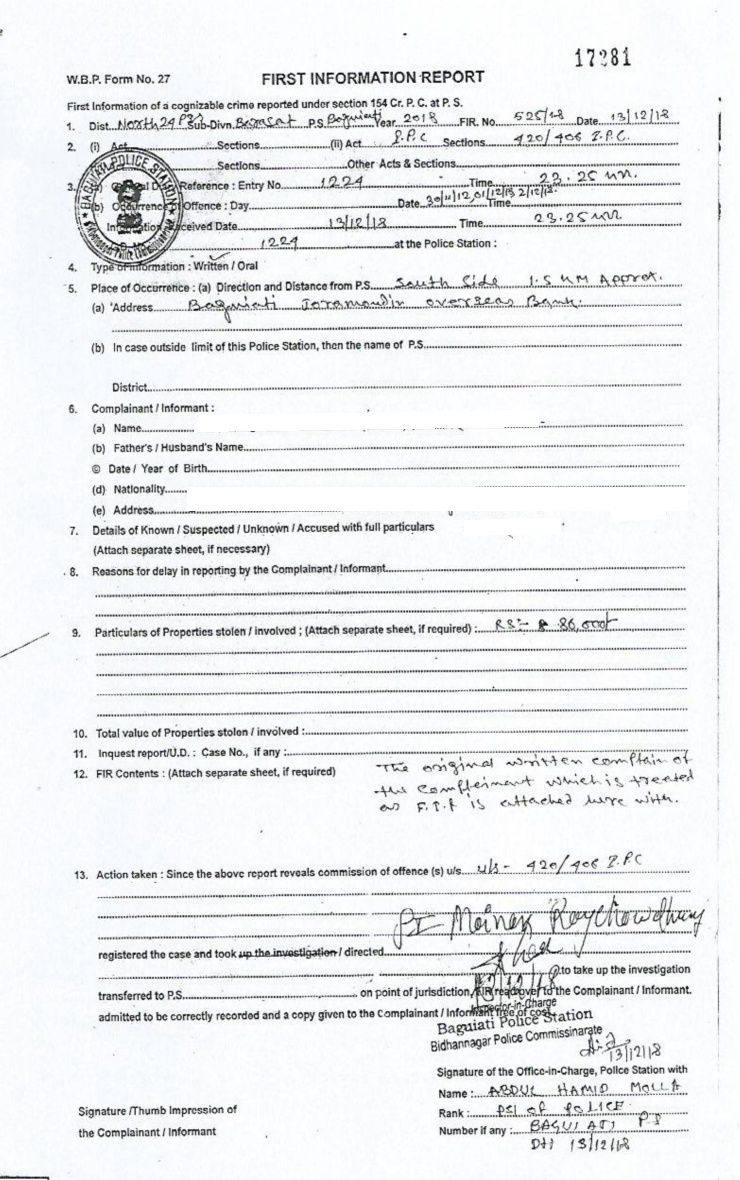 17281
W.B.P. Form No. 27 FIRST INFORMATION REPORT
First Information of a cognizable crime reported under section 154 Cr. P. C. at P. S.
1. Dist. North 24 PGS Sub-Divn. Barasat P.S. Baguiati Year 2018 FIR. No. 525/18 Date 13/12/18
2. (i) Act Sections (ii) Act I.P.C Sections 420/406 I.P.C.
Sections Other Acts & Sections
3. Reference : Entry No. 1224 Time 23.25 hrs.
(b) Occurrence of Offence : Day Date 30/11/12, 01/12/18 2/12/18 Time
Information Received Date 13/12/18 Time 23.25 hrs
1224 at the Police Station :
BAGUIATI POLICE STATION
4. Type of Information : Written / Oral
5. Place of Occurrence : (a) Direction and Distance from P.S. South Side 1.5 KM Approx.
(a) 'Address Baguiati Joramandir overseas Bank.
(b) In case outside limit of this Police Station, then the name of P.S.
District
6. Complainant / Informant :
(a) Name
(b) Father's / Husband's Name
© Date / Year of Birth
(d) Nationality
(e) Address
7. Details of Known / Suspected / Unknown / Accused with full particulars
(Attach separate sheet, if necessary)
8. Reasons for delay in reporting by the Complainant / Informant
9. Particulars of Properties stolen / involved ; (Attach separate sheet, if required) : RS:- 86,000/-
10. Total value of Properties stolen / involved :
11. Inquest report/U.D. : Case No., if any :
12. FIR Contents : (Attach separate sheet, if required) The original written complain of
the complainant which is treated
as F.I.R is attached here with.
13. Action taken : Since the above report reveals commission of offence (s) u/s u/s - 420/406 I.P.C
PI Mainak Roychowdhury
registered the case and took up the investigation / directed
to take up the investigation
transferred to P.S. on point of jurisdiction, FIR read over to the Complainant / Informant.
admitted to be correctly recorded and a copy given to the Complainant / Informant free of cost.
Inspector-in-Charge
Baguiati Police Station
Bidhannagar Police Commissinarate
13/12/18
Signature of the Office-in-Charge, Police Station with
Name : ABDUL HAMID MOLLA
Signature /Thumb Impression of Rank : PSI OF POLICE
the Complainant / Informant Number if any : BAGUIATI P.S
Dt 13/12/18